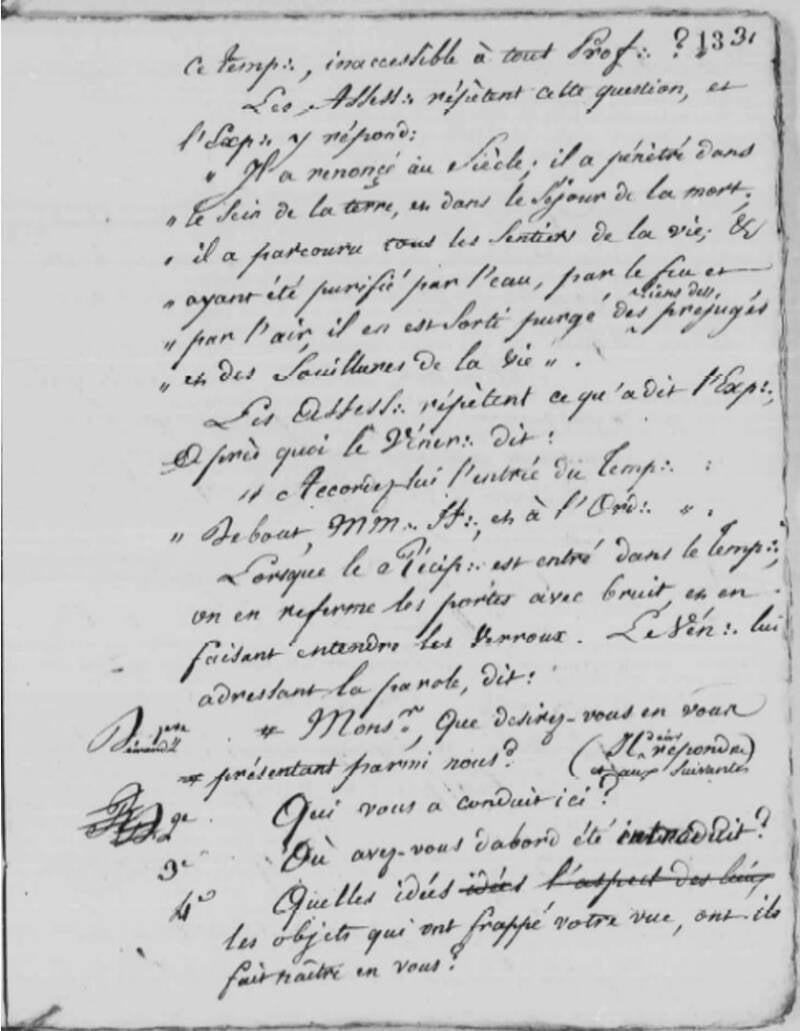 133.
ce temp∴, inaccessible à tout Prof∴ ?
Les Assess∴ répètent cette question, et
l'Exp∴ y répond:
" Il a renoncé au Siècle; il a pénétré dans
" le sein de la terre, et dans le Séjour de la mort;
" il a parcouru tous les Sentiers de la vie; &
" ayant été purifié par l'eau, par le feu et
" par l'air, il en est sorti purgé des liens des préjugés
" et des Souillures de la vie ".
Les Assess∴ répètent ce qu'a dit l'Exp∴,
Après quoi le Vénér∴ dit:
" Accordez-lui l'entrée du Temp∴ :
" Debout, MM∴ FF∴, et à l'Ord∴ ".
Lorsque le Récip∴ est entré dans le Temp∴,
on en referme les portes avec bruit, et en
faisant entendre les Verroux. Le Vén∴ lui
adressant la parole, dit:
1ere Demande " Monsr, Que desirez-vous en vous
présentant parmi nous? (Il doit répondre
et aux Suivantes)
2e Qui vous a conduit ici?
3e Où avez-vous dabord été introduit?
4e Quelles idées idées l'aspect des lieux
les objets qui ont frappé votre vue, ont-ils
fait naître en vous?